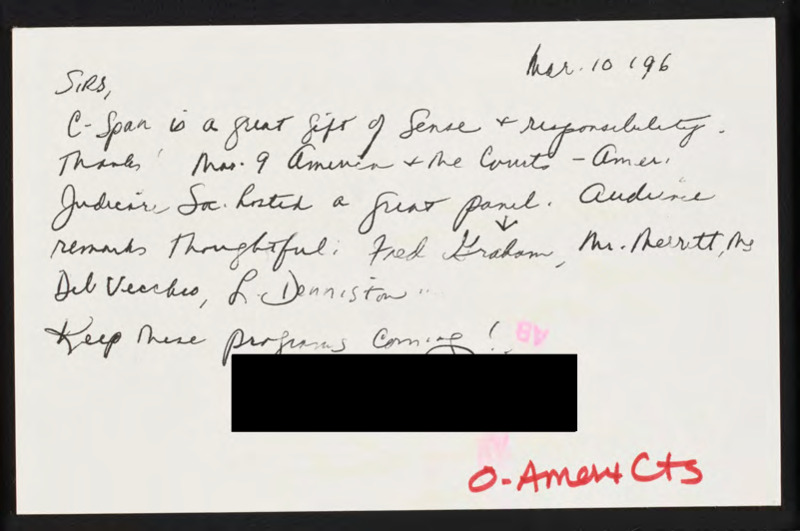 Mar. 10 196
SIRS,
C-Span is a great gift of Sense & responsibility.
Thanks! Mar. 9 America & the Courts - Amer.
Judicature Soc. hosted a great panel. Audience
remarks thoughtful: Fred Graham, Mr. Merritt, Ms
Del Vecchio, L. Denniston
Keep these programs coming!
AB
O-Amer & Cts